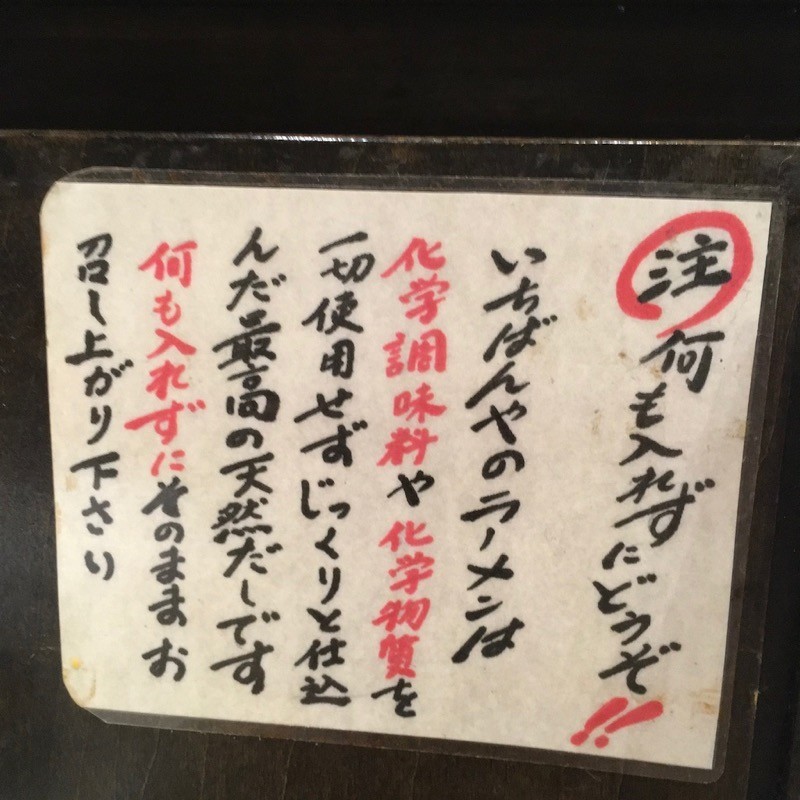 注 何も入れずにどうぞ!!
いちばんやのラーメンは
化学調味料や化学物質を
一切使用せずじっくりと仕込
んだ最高の天然だしです
何も入れずにそのままお
召し上がり下さい